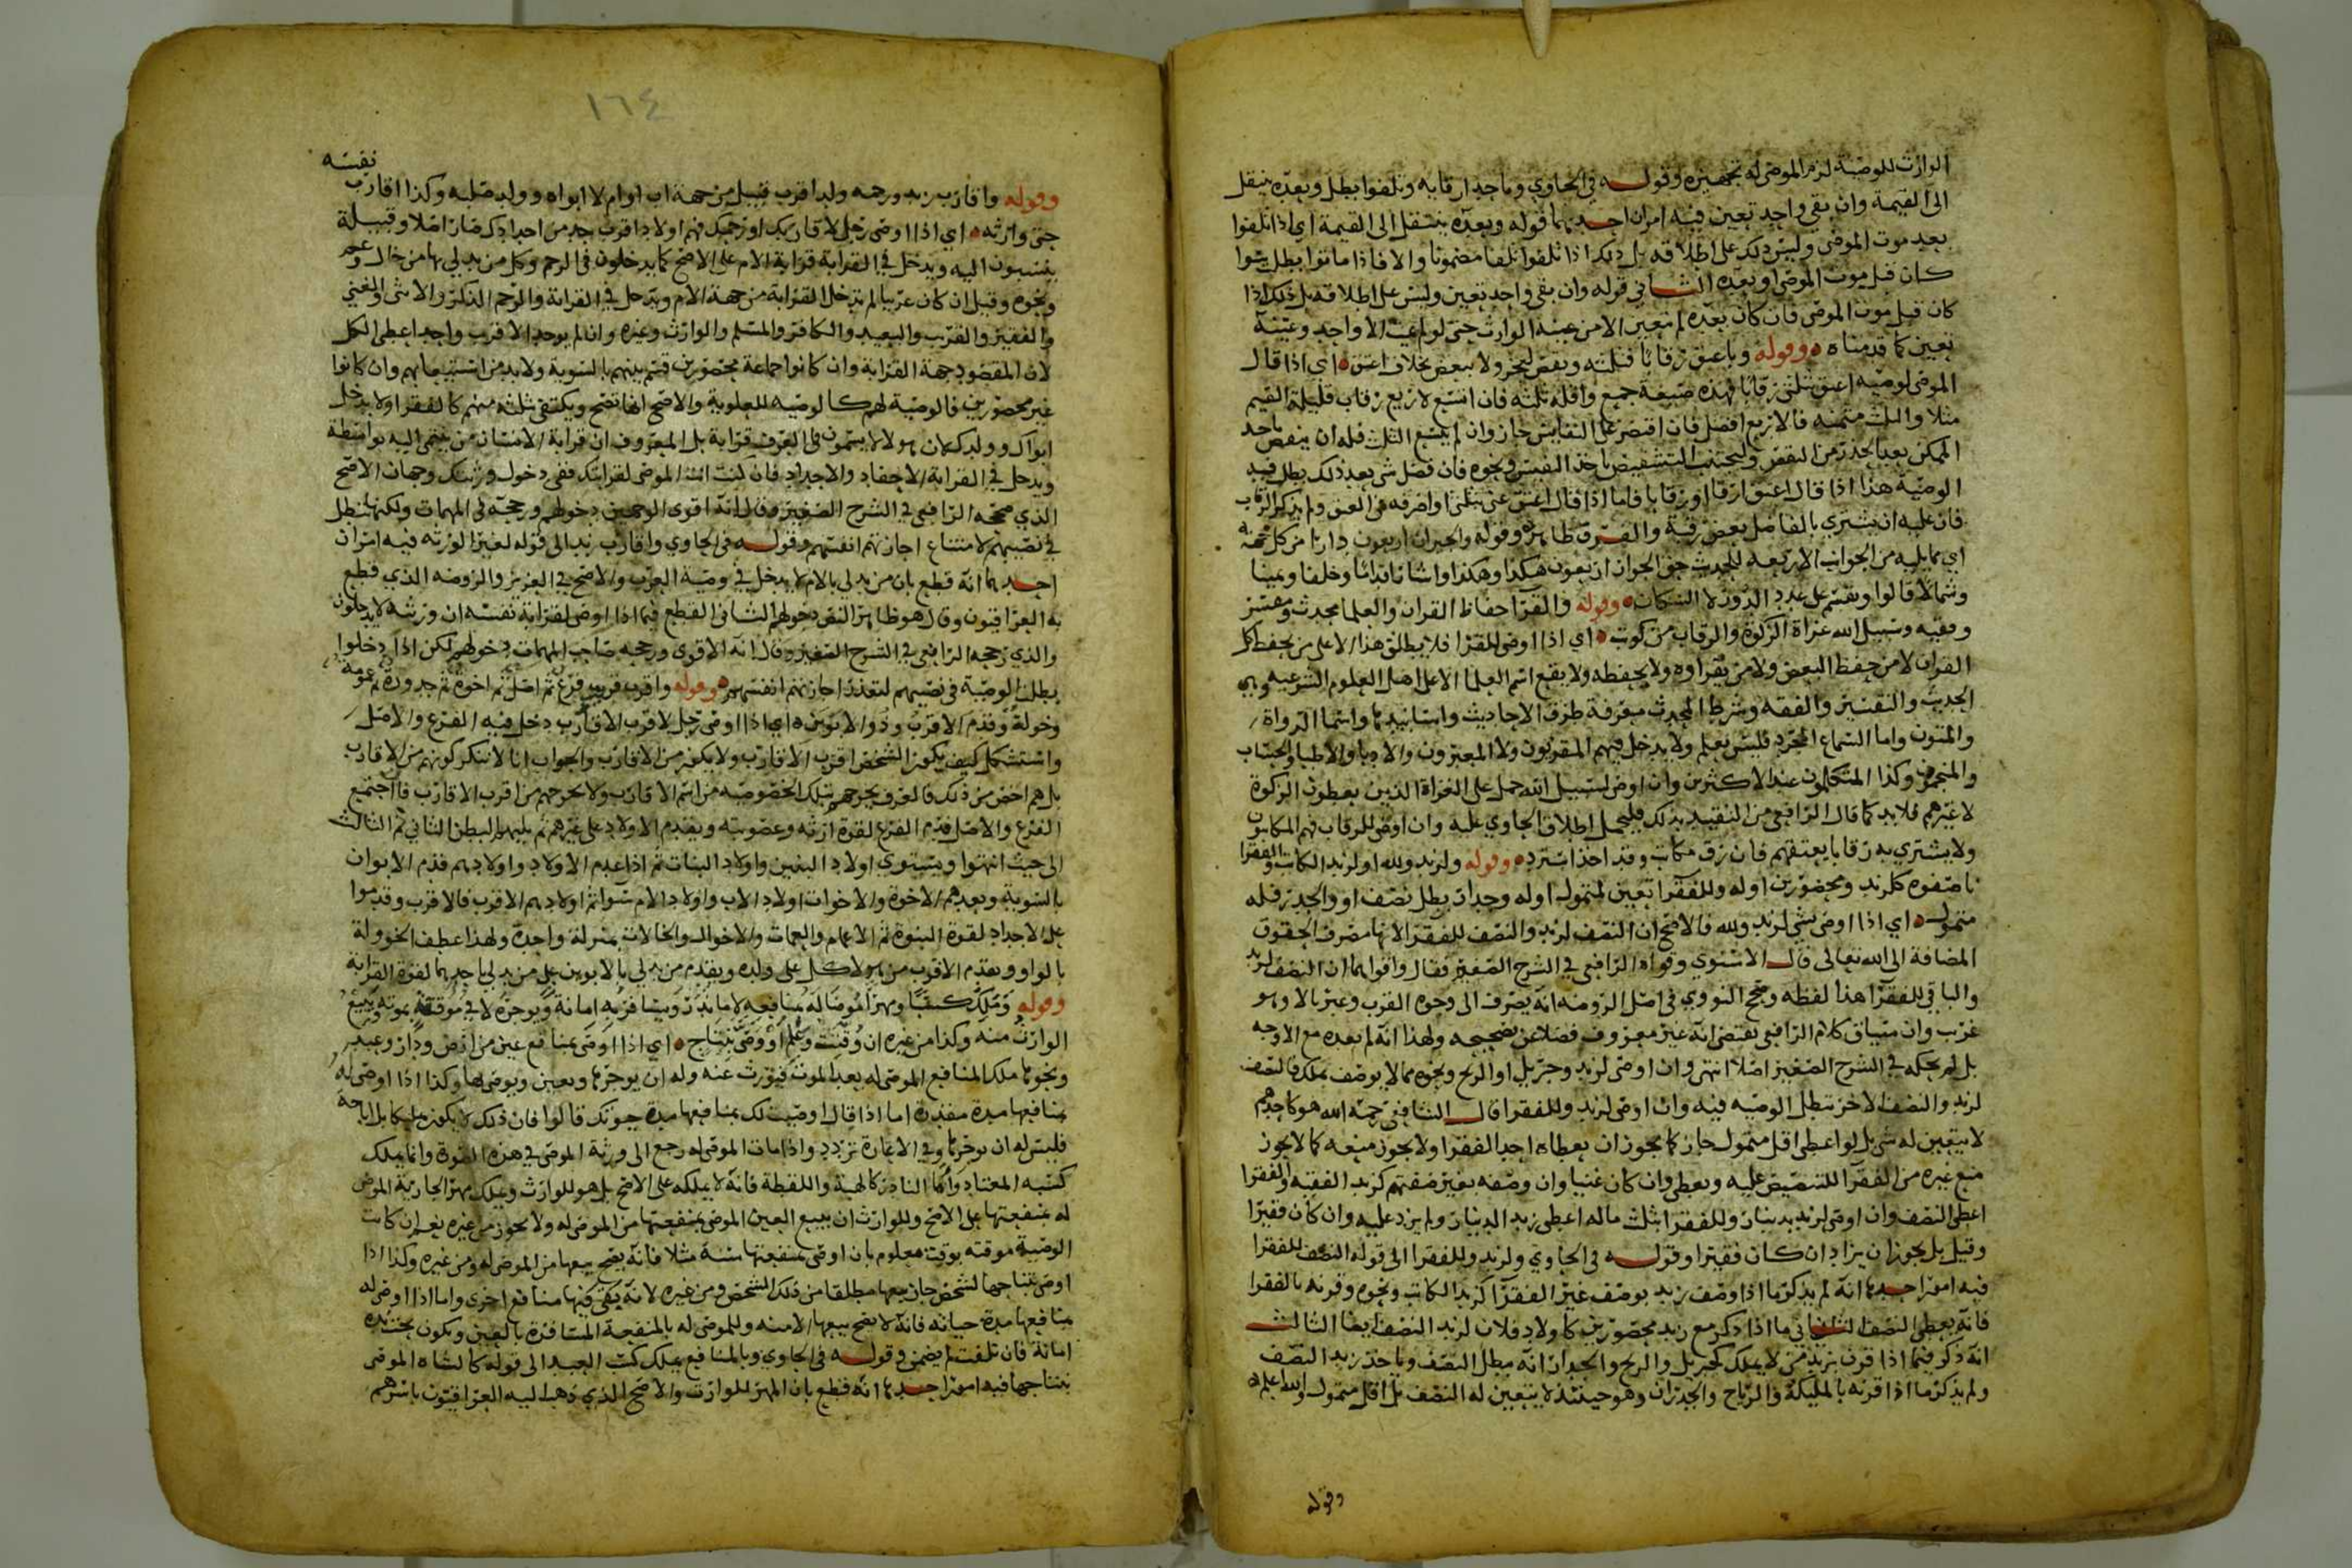 الوارث للوصية لزم الموصى له تجهيزه وقوله في الحاوي وباحد ارقابه وتلفوا بطل وبعده ينتقل
الى القيمة وان بقي واحد تعين فيه امران احدهما قوله وبعده ينتقل الى القيمة اي اذا تلفوا
بعد موت الموصى وليس ذلك على اطلاقه بل ذلك اذا تلفوا تلفا مضمونا والا فاذا ماتوا بطل سوا
كان قبل موت الموصى او بعده الثاني قوله وان بقي واحد تعين وليس على اطلاقه بل ذلك اذا
كان قبل موت الموصى فان كان بعده لم تعين الا من عينه الوارث حتى لو لم يمت الا واحد وعينه
تعين كما قدمناه وقوله وباعتق رقابا فثلثه ونقص لعجز ولا ببعض بخلاف اعتق اي اذا قال
الموصى لوصيه اعتق بثلثي رقابا فهذه صيغة جمع واقله ثلثه فان اتسع لاربع رقاب قليلة القيم
مثلا والثلث متمنه فالاربع افضل فان اقتصر على النفايس جاز وان لم يتسع الثلث فله ان ينقص باحد
الممكن بعد الحذر من النقص وليجتنب التشقيص باخذ النفيس ونحوه فان فضل شي بعد ذلك بطل فيه
الوصية هذا اذا قال اعتق ارقا او رقابا فاما اذا قال اعتق عني بثلثي او اصرفه في العتق ولم يذكر الرقاب
فان عليه ان يشتري بالفاضل بعض رقبة والفرق ظاهر وقوله والجيران اربعون دارا من كل جهة
اي مما يليه من الجوانب الاربعه للحديث حق الجوار اربعون هكذا وهكذا واشار قداما وخلفا ويمينا
وشمالا قالوا ويقسم على عدد الدور لا السكان وقوله والقرا حفاظ القران والعلما محدث ومفسر
وفقيه وسبيل الله غزاة الزكوة والرقاب من كوتب اي اذا اوصى للقرا فلا يطلق هذا الا على من يحفظ كل
القران لا من حفظ البعض ولا من يقراوه ولا يحفظه ولا يقع اسم العلما الا على اهل العلوم الشرعيه وهي
الحديث والتفسير والفقه وشرط المحدث معرفة طرق الاحاديث واسانيدها واسما الرواة
والمتون واما السماع المجرد فليس بعلم ولا يدخل فيهم المقريون ولا المعبرون والادبا والاطبا والحساب
والمنجمون وكذا المتكلمون عند الاكثرين وان اوصى لسبيل الله حمل على الغزاة الذين يعطون الزكوة
لا غيرهم فلا بد كما قال الرافعي من التقييد بذلك فليحمل اطلاق الحاوي عليه وان اوصى للرقاب فهم المكاتبون
ولا يشتري به رقابا يعتقهم فان رق مكاتب وقد اخذ استرد وقوله ولزيد ولله او لزيد الكاتب والفقرا
ناصفوه كلزيد ومحصورين او له وللفقرا تعين لمتمول او له وجدار بطل نصف او والجدر فله
متمول اي اذا اوصى بشي لزيد ولله فالاصح ان النصف لزيد والنصف للفقرا لانها مصرف الحقوق
المضافة الى الله تعالى قال الاسنوي وقواه الرافعي في الشرح الصغير فقال واقواهما ان النصف لزيد
والباقي للفقرا هذا لفظه وصحح النووي في اصل الروضه انه يصرف الى وجوه القرب وعبر بالاوجه وهو
غريب وان سياق كلام الرافعي يقتضي انه غير معروف فضلا عن تصحيحه ولهذا انه لم يعده مع الاوجه
بل لم يحكه في الشرح الصغير اصلا انتهى وان اوصى لزيد وجبريل او الريح ونحوه مما لا يوصف بملك فالنصف
لزيد والنصف الاخر تبطل الوصيه فيه وان اوصى لزيد وللفقرا قال الشافعي رحمه الله هو كاحدهم
لا يتعين له شي بل لو اعطى اقل متمول جاز كما يجوز ان يعطاه احد الفقرا ولا يجوز منعه كما لا يجوز
منع غيره من الفقرا للتنصيص عليه ويعطى وان كان غنيا وان وصفه بغير صفتهم كزيد الفقيه والفقرا
اعطى النصف وان اوصى لزيد بدينار وللفقرا بثلث ماله اعطى زيد الدينار ولم يزد عليه وان كان فقيرا
وقيل بل يجوز ان يزاد ان كان فقيرا وقوله في الحاوي ولزيد وللفقرا الى قوله النصف للفقرا
فيه امور احدها انه لم يذكر ما اذا وصف زيد بوصف غير الفقرا كزيد الكاتب ونحوه وقرنه بالفقرا
فانه يعطى النصف الثاني ما اذا ذكر مع زيد محصورين كاولاد فلان لزيد النصف ايضا الثالث
انه ذكر فيما اذا قرن بزيد من لا يملك كجبريل والريح والجدار انه مبطل النصف وياخذ زيد النصف
ولم يذكر ما اذا قرنه بالمليكة والرياح والجدران وهو حينئذ لا يتعين له النصف بل اقل متمول والله اعلم
وقوله
١٦٤
وقوله واقارب زيد ورحمه ولد اقرب قبيل من جهة اب او ام لا ابواه وولد صلبه وكذا اقارب نفسه
حتى وارثه اي اذا اوصى رجل لاقاربك او رحمك فهم اولاد اقرب جد من اجدادك صار اصلا وقبيلة
ينتسبون اليه ويدخل في القرابة قرابة الام على الاصح كما يدخلون في الرحم وكل من يدلي بها من خال وعم
ونحوه وقيل ان كان عربيا لم تدخل القرابة من جهة الام ويدخل في القرابة والرحم الذكر والانثى والغني
والفقير والقريب والبعيد والكافر والمسلم والوارث وغيره وان لم يوجد الا قريب واحد اعطى الكل
لان المقصود جهة القرابة وان كانوا جماعة محصورين قسم بينهم بالسوية ولا بد من استيعابهم وان كانوا
غير محصورين فالوصية لهم كالوصيه للعلوية والاصح انها تصح ويكتفي بثلثه منهم كالفقرا ولا يدخل
ابواك وولدك لان هولا لا يسمون في العرف قرابة بل المعروف ان قرابة الانسان من ينتمي اليه بواسطة
ويدخل في القرابة الاحفاد والاجداد فان كنت انت الموصى لقرابتك ففي دخول ورثتك وجهان الاصح
الذي صححه الرافعي في الشرح الصغير وقال انه اقوى الوجهين دخولهم ورجحه في المهمات ولكنها تبطل
في نصيبهم لامتناع اجازتهم انفسهم وقوله في الحاوي واقارب زيد الى قوله لغير الورثه فيه امران
احدهما انه قطع بان من يدلي بالام لا يدخل في وصية العرب والاصح في العزيز والروضه الذي قطع
به العراقيون وقال هو ظاهر النص دخولهم الثاني القطع فيما اذا اوصى لقرابة نفسه ان ورثته لا يدخلون
والذي رجحه الرافعي في الشرح الصغير وقال انه الاقوى ورجحه صاحب المهمات دخولهم لكن اذا دخلوا
بطل الوصية في نصيبهم لتعذر اجازتهم انفسهم وقوله واقرب قريب فرع ثم اصل ثم اخوة ثم جدودة ثم عمومة
وخولة وقدم الاقرب وذو الابوين اي اذا اوصى رجل لاقرب الاقارب دخل فيه الفرع والاصل
واستشكل كيف يكون الشخص اقرب الاقارب ولا يكون من الاقارب والجواب انا لا ننكر كونهم من الاقارب
بل هم اخص من ذلك فالعرف يخرجهم بتلك الخصوصيه من اسم الاقارب ولا يخرجهم من اقرب الاقارب فان اجتمع
الفرع والاصل قدم الفرع لقوة ارثه وعصوبته ويقدم الاولاد على غيرهم ثم يليهم البطن الثاني ثم الثالث
الى حيث انتهوا ويستوي اولاد البنين واولاد البنات ثم اذا عدم الاولاد واولادهم قدم الابوان
بالسوية وبعدهم الاخوة والاخوات اولاد الاب واولاد الام سواثم اولادهم الاقرب فالاقرب وقدموا
على الاجداد لقوة البنوة ثم الاعمام والعمات والاخوال والخالات بمنزلة واحدة ولهذا عطف الخوولة
بالواو ويقدم الاقرب من هولا كل على ولده ويقدم من يدلي بالابوين على من يدلي باحدهما لقوة القرابة
وقوله وملك كسبا ومهرا موصا له منافعه لا ما ندر ويسافر به امانة ويوجره لا في موقتة بموته ويبيع
الوارث منه وكذا من غيره ان وقتت وعلم او وصى بنتاج اي اذا اوصى بمنافع عين من ارض ودار وعبد
ونحوها ملك المنافع الموصى له بعد الموت فيورث عنه وله ان يوجرها ويعين ويوصى لها وكذا اذا اوصى له
بمنافعها مدة مقدرة اما اذا قال اوصيت لك بمنافعها مدة حيوتك قالوا فان ذلك لا يكون تمليكا بل اباحة
فليس له ان يوجرها وفي الاعارة تردد واذا مات الموصى له رجع الى ورثة الموصى في هذه الصورة وانما يملك
كسبه المعتاد واما النادر كالهبة واللقطة فانه لا يملكه على الاصح بل هو للوارث ويملك مهر الجارية الموصى
له بمنفعتها على الاصح وللوارث ان يبيع العين الموصى بمنفعتها من الموصى له ولا يجوز من غيره نعم ان كانت
الوصية موقته بوقت معلوم بان اوصى بمنفعتها سنة مثلا فانه يصح بيعها من الموصى له ومن غيره وكذا اذا
اوصى بنتاجها لشخص جاز بيعها مطلقا من ذلك الشخص ومن غيره لانه يبقى فيها منافع اخرى واما اذا اوصى له
بمنافعها مدة حياته فانه لا يصح بيعها الا منه وللموصى له بالمنفعة المسافرة بالعين ويكون تحت يده
امانة فان تلفت لم يضمن وقوله في الحاوي وبالمنافع يملك كسب العبد الى قوله كالشاه الموصى
بنتاجها فيه امور احدها انه قطع بان المهر للوارث والاصح الذي ذهب اليه العراقيون باسرهم